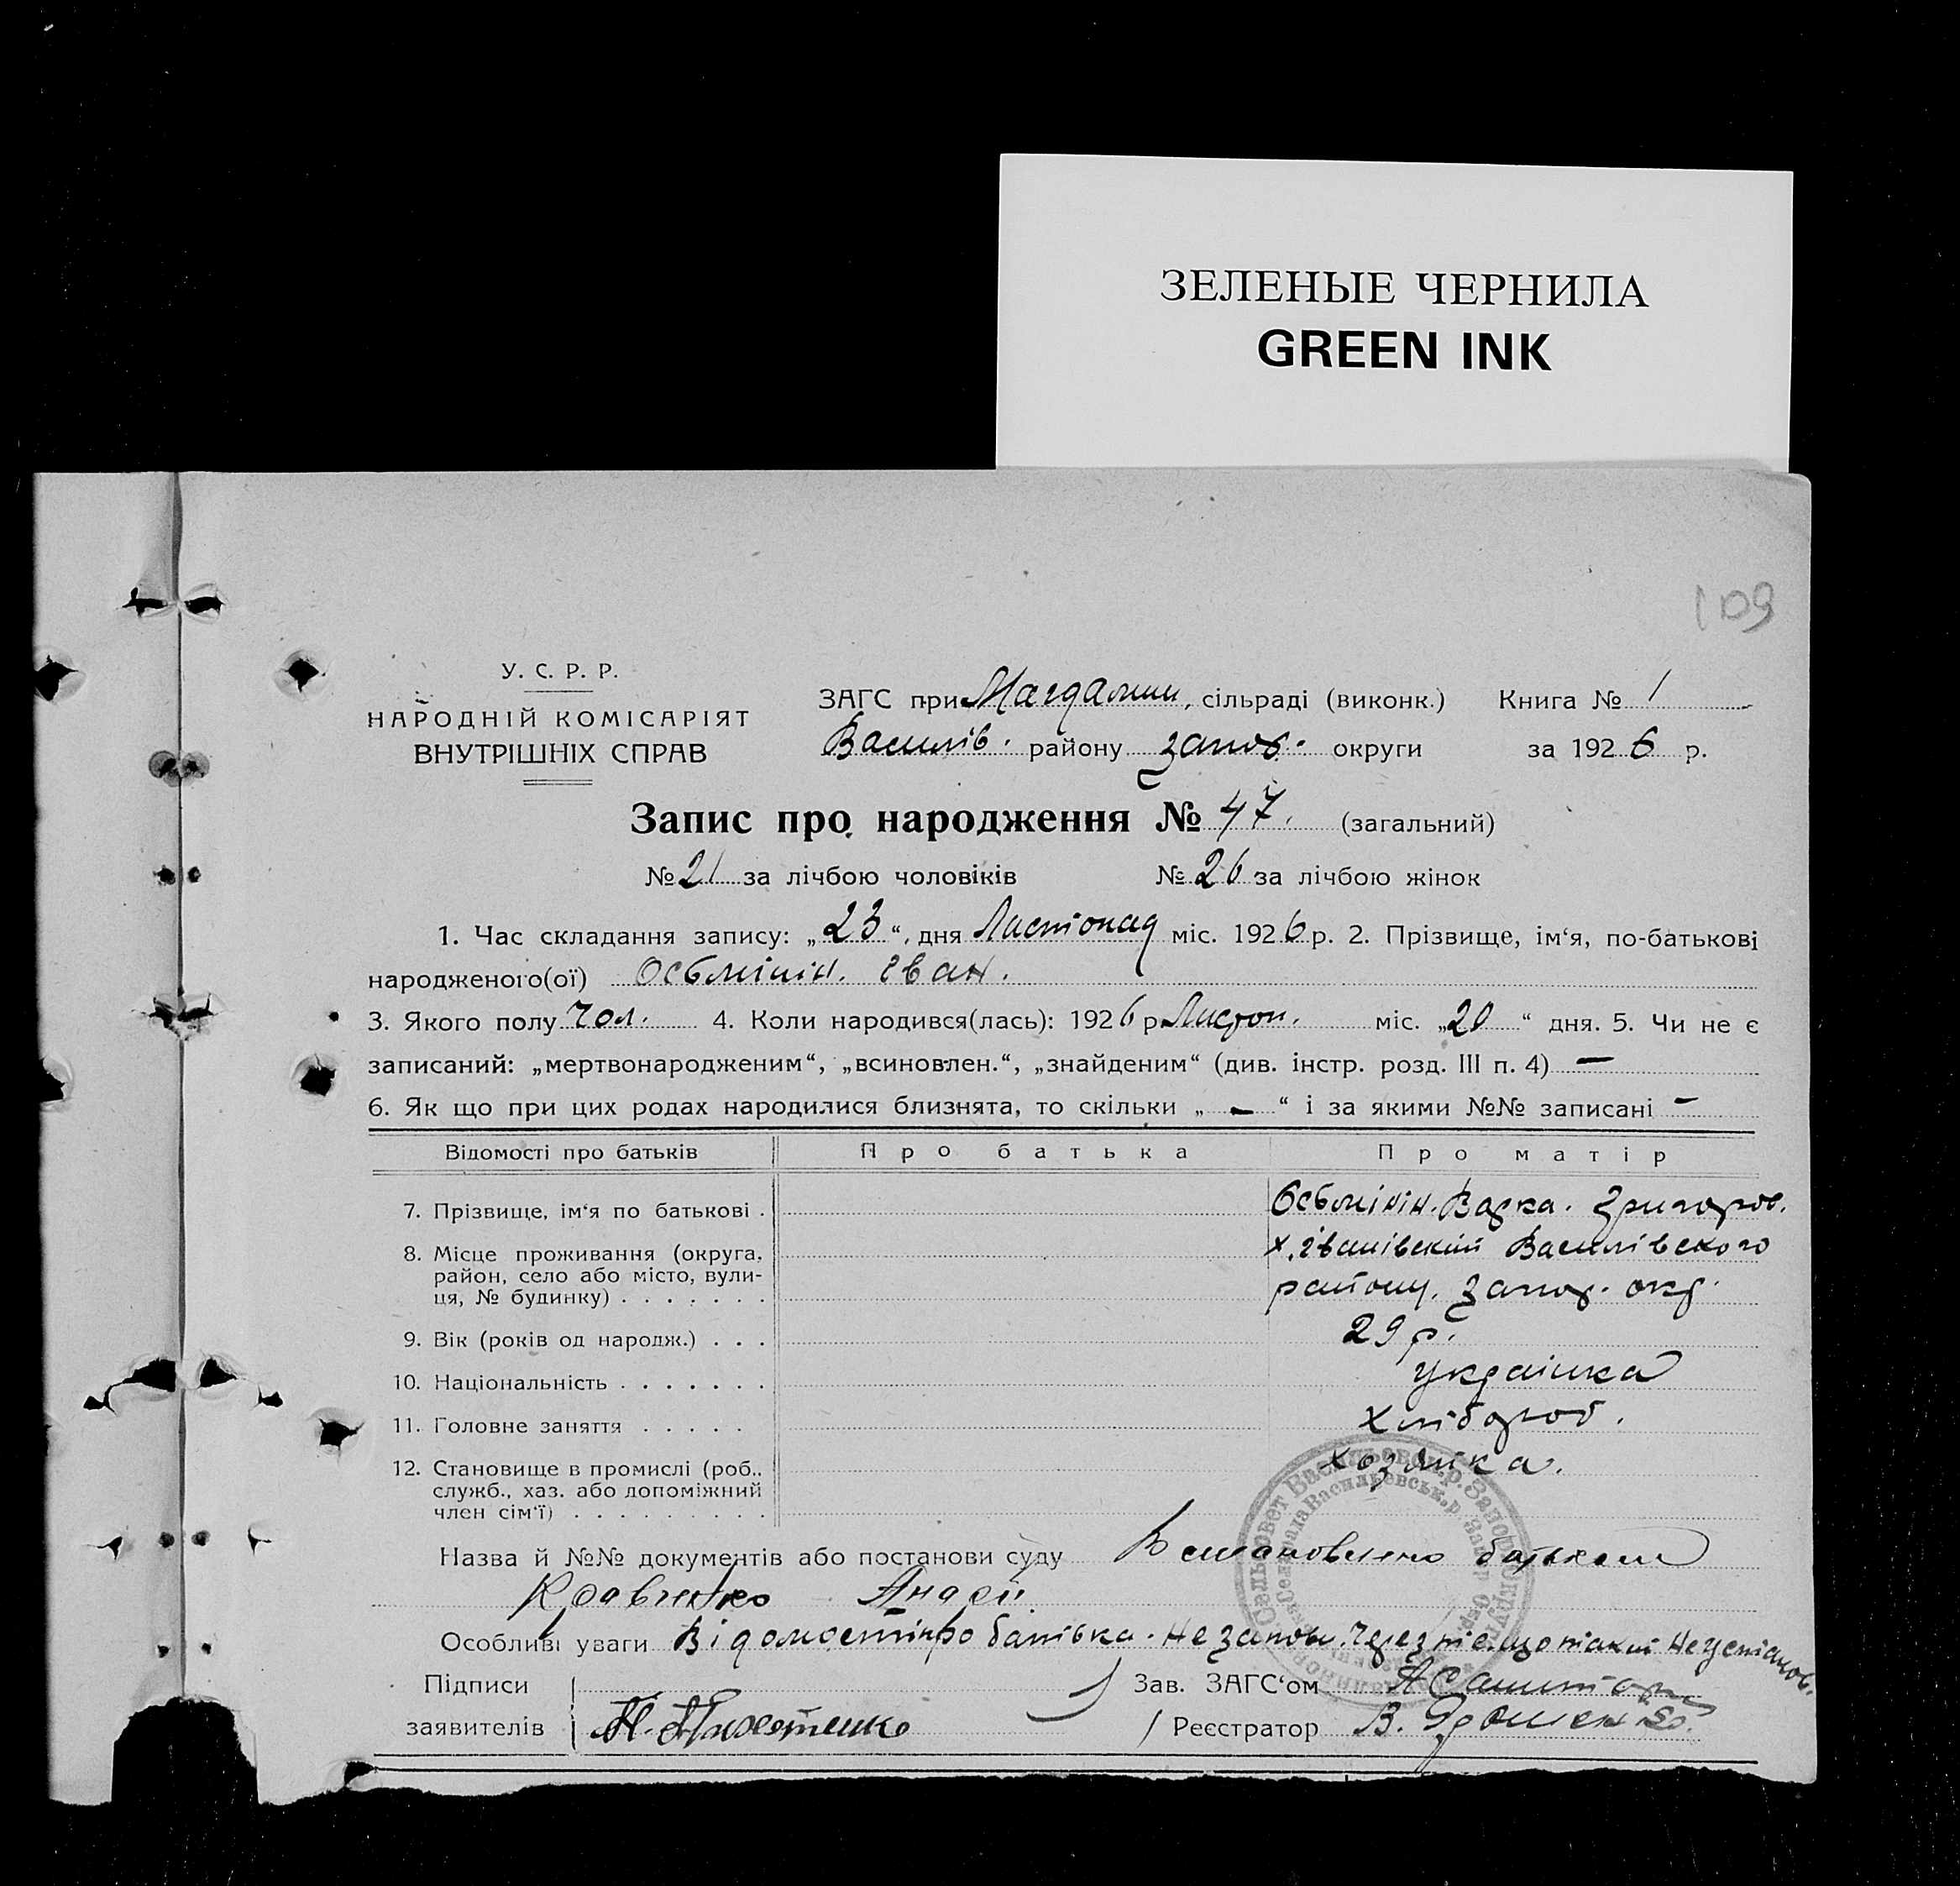 ЗЕЛЕНЫЕ ЧЕРНИЛА
GREEN INK
109
У. С. Р. Р.
НАРОДНІЙ КОМІСАРІЯТ
ВНУТРІШНІХ СПРАВ
ЗАГС при Магдалин, сільраді (виконк.) Книга № 1
Василів. району запор. округи за 1926 р.
Запис про народження № 47. (загальний)
№ 21 за лічбою чоловіків № 26 за лічбою жінок
1. Час складання запису: „23“, дня Листіопад міс. 1926 р. 2. Прізвище, ім‘я, по-батькові
народженого(ої) Осьмінін. Іван.
3. Якого полу Чол. 4. Коли народився(лась): 1926 р Листоп. міс. „20“ дня. 5. Чи не є
записаний: „мертвонародженим“, „всиновлен.“, „знайденим“ (див. інстр. розд. III п. 4) —
6. Як що при цих родах народилися близнята, то скільки „ — “ і за якими №№ записані —
Відомості про батьків Про батька Про матір
7. Прізвище, ім‘я по батькові . Осьмінін. Варка. Григоров.
8. Місце проживання (округа, х. Іванівский Василівского
район, село або місто, вули- району. Запор. окр.
ця, № будинку) . . . . . . .
9. Вік (років од народж.) . . . 29 р.
10. Національність . . . . . . . українка
11. Головне заняття . . . . . хлібороб.
12. Становище в промислі (роб., хозяїка.
служб., хаз. або допоміжний
член сім‘ї) . . . . . . . . .
Назва й №№ документів або постанови суду Встановлено батьком
Кравченко Андрій
Особливі уваги Відомости про батька. Не запов. Через те що такий Не устіанов.
Підписи Зав. ЗАГС‘ом
заявителів Реєстратор В.